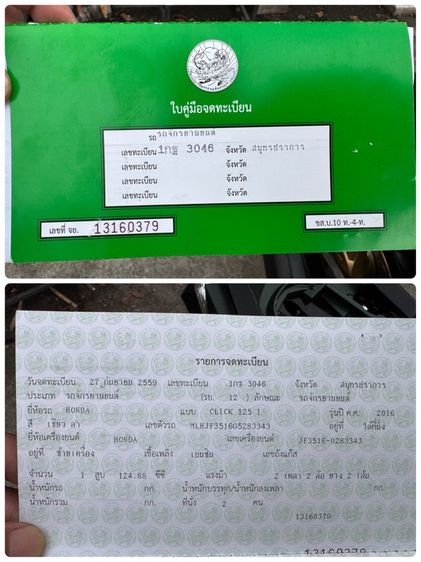 ใบคู่มือจดทะเบียน
รถ รถจักรยานยนต์
เลขทะเบียน 1กฐ 3046 จังหวัด สมุทรปราการ
เลขทะเบียน จังหวัด
เลขทะเบียน จังหวัด
เลขทะเบียน จังหวัด
เลขที่ จย. 13160379
ขส.บ.10 ท.-4-ท.
รายการจดทะเบียน
วันจดทะเบียน 27 กันยายน 2559 เลขทะเบียน 1กฐ 3046 จังหวัด สมุทรปราการ
ประเภท รถจักรยานยนต์ (รย. 12) ลักษณะ รถจักรยานยนต์
ยี่ห้อรถ HONDA แบบ CLICK 125 I รุ่นปี ค.ศ. 2016
สี เขียว ดำ เลขตัวรถ MLHJF3516G5283343 อยู่ที่ ใต้ที่นั่ง
ยี่ห้อเครื่องยนต์ HONDA เลขเครื่องยนต์ JF351E-0283343
อยู่ที่ ซ้ายเครื่อง เชื้อเพลิง เบนซิน เลขถังแก๊ส
จำนวน 1 สูบ 124.88 ซีซี แรงม้า 2 เพลา 2 ล้อ ยาง 2 เส้น
น้ำหนักรถ กก. น้ำหนักบรรทุก/น้ำหนักลงเพลา กก.
น้ำหนักรวม กก. ที่นั่ง 2 คน
13160379
13160379